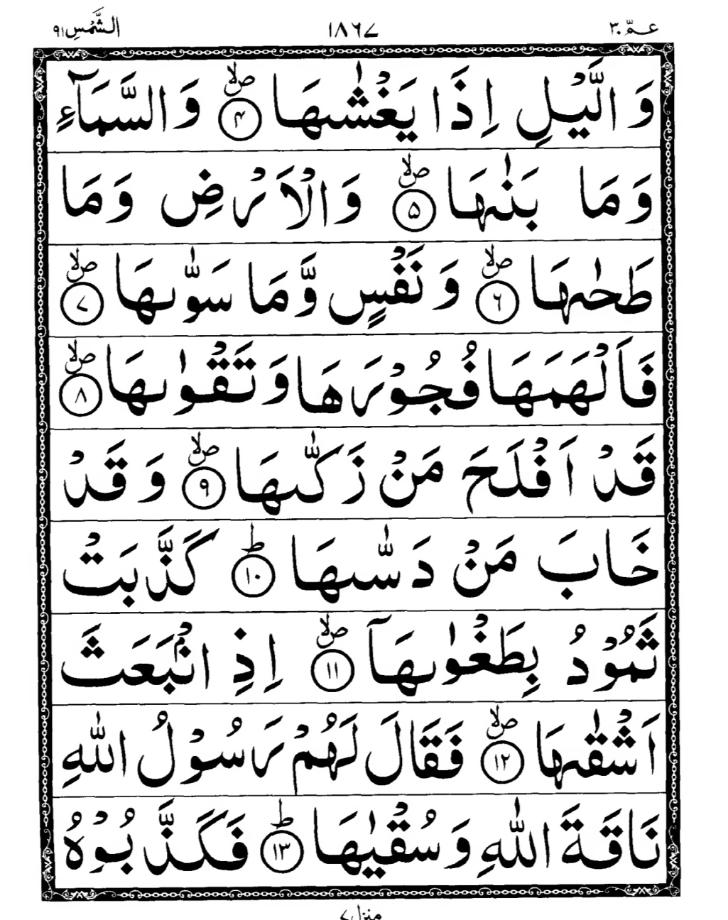 عـمّ ٣٠ ١٨٦٧ الشَّمْس ٩١
وَ الَّيْلِ اِذَا يَغْشٰىهَا ۪ۙ ﴿۴﴾ وَ السَّمَآءِ
وَ مَا بَنٰىهَا ۪ۙ ﴿۵﴾ وَ الْاَرْضِ وَ مَا
طَحٰىهَا ۪ۙ ﴿۶﴾ وَ نَفْسٍ وَّ مَا سَوّٰىهَا ۪ۙ ﴿۷﴾
فَاَلْهَمَهَا فُجُوْرَهَا وَ تَقْوٰىهَا ۪ۙ ﴿۸﴾
قَدْ اَفْلَحَ مَنْ زَكّٰىهَا ۪ۙ ﴿۹﴾ وَ قَدْ
خَابَ مَنْ دَسّٰىهَا ؕ ﴿۱۰﴾ كَذَّبَتْ
ثَمُوْدُ بِطَغْوٰىهَاۤ ۪ۙ ﴿۱۱﴾ اِذِ انْۢبَعَثَ
اَشْقٰىهَا ۪ۙ ﴿۱۲﴾ فَقَالَ لَهُمْ رَسُوْلُ اللّٰهِ
نَاقَةَ اللّٰهِ وَ سُقْيٰهَا ؕ ﴿۱۳﴾ فَكَذَّبُوْهُ
منزل ٧